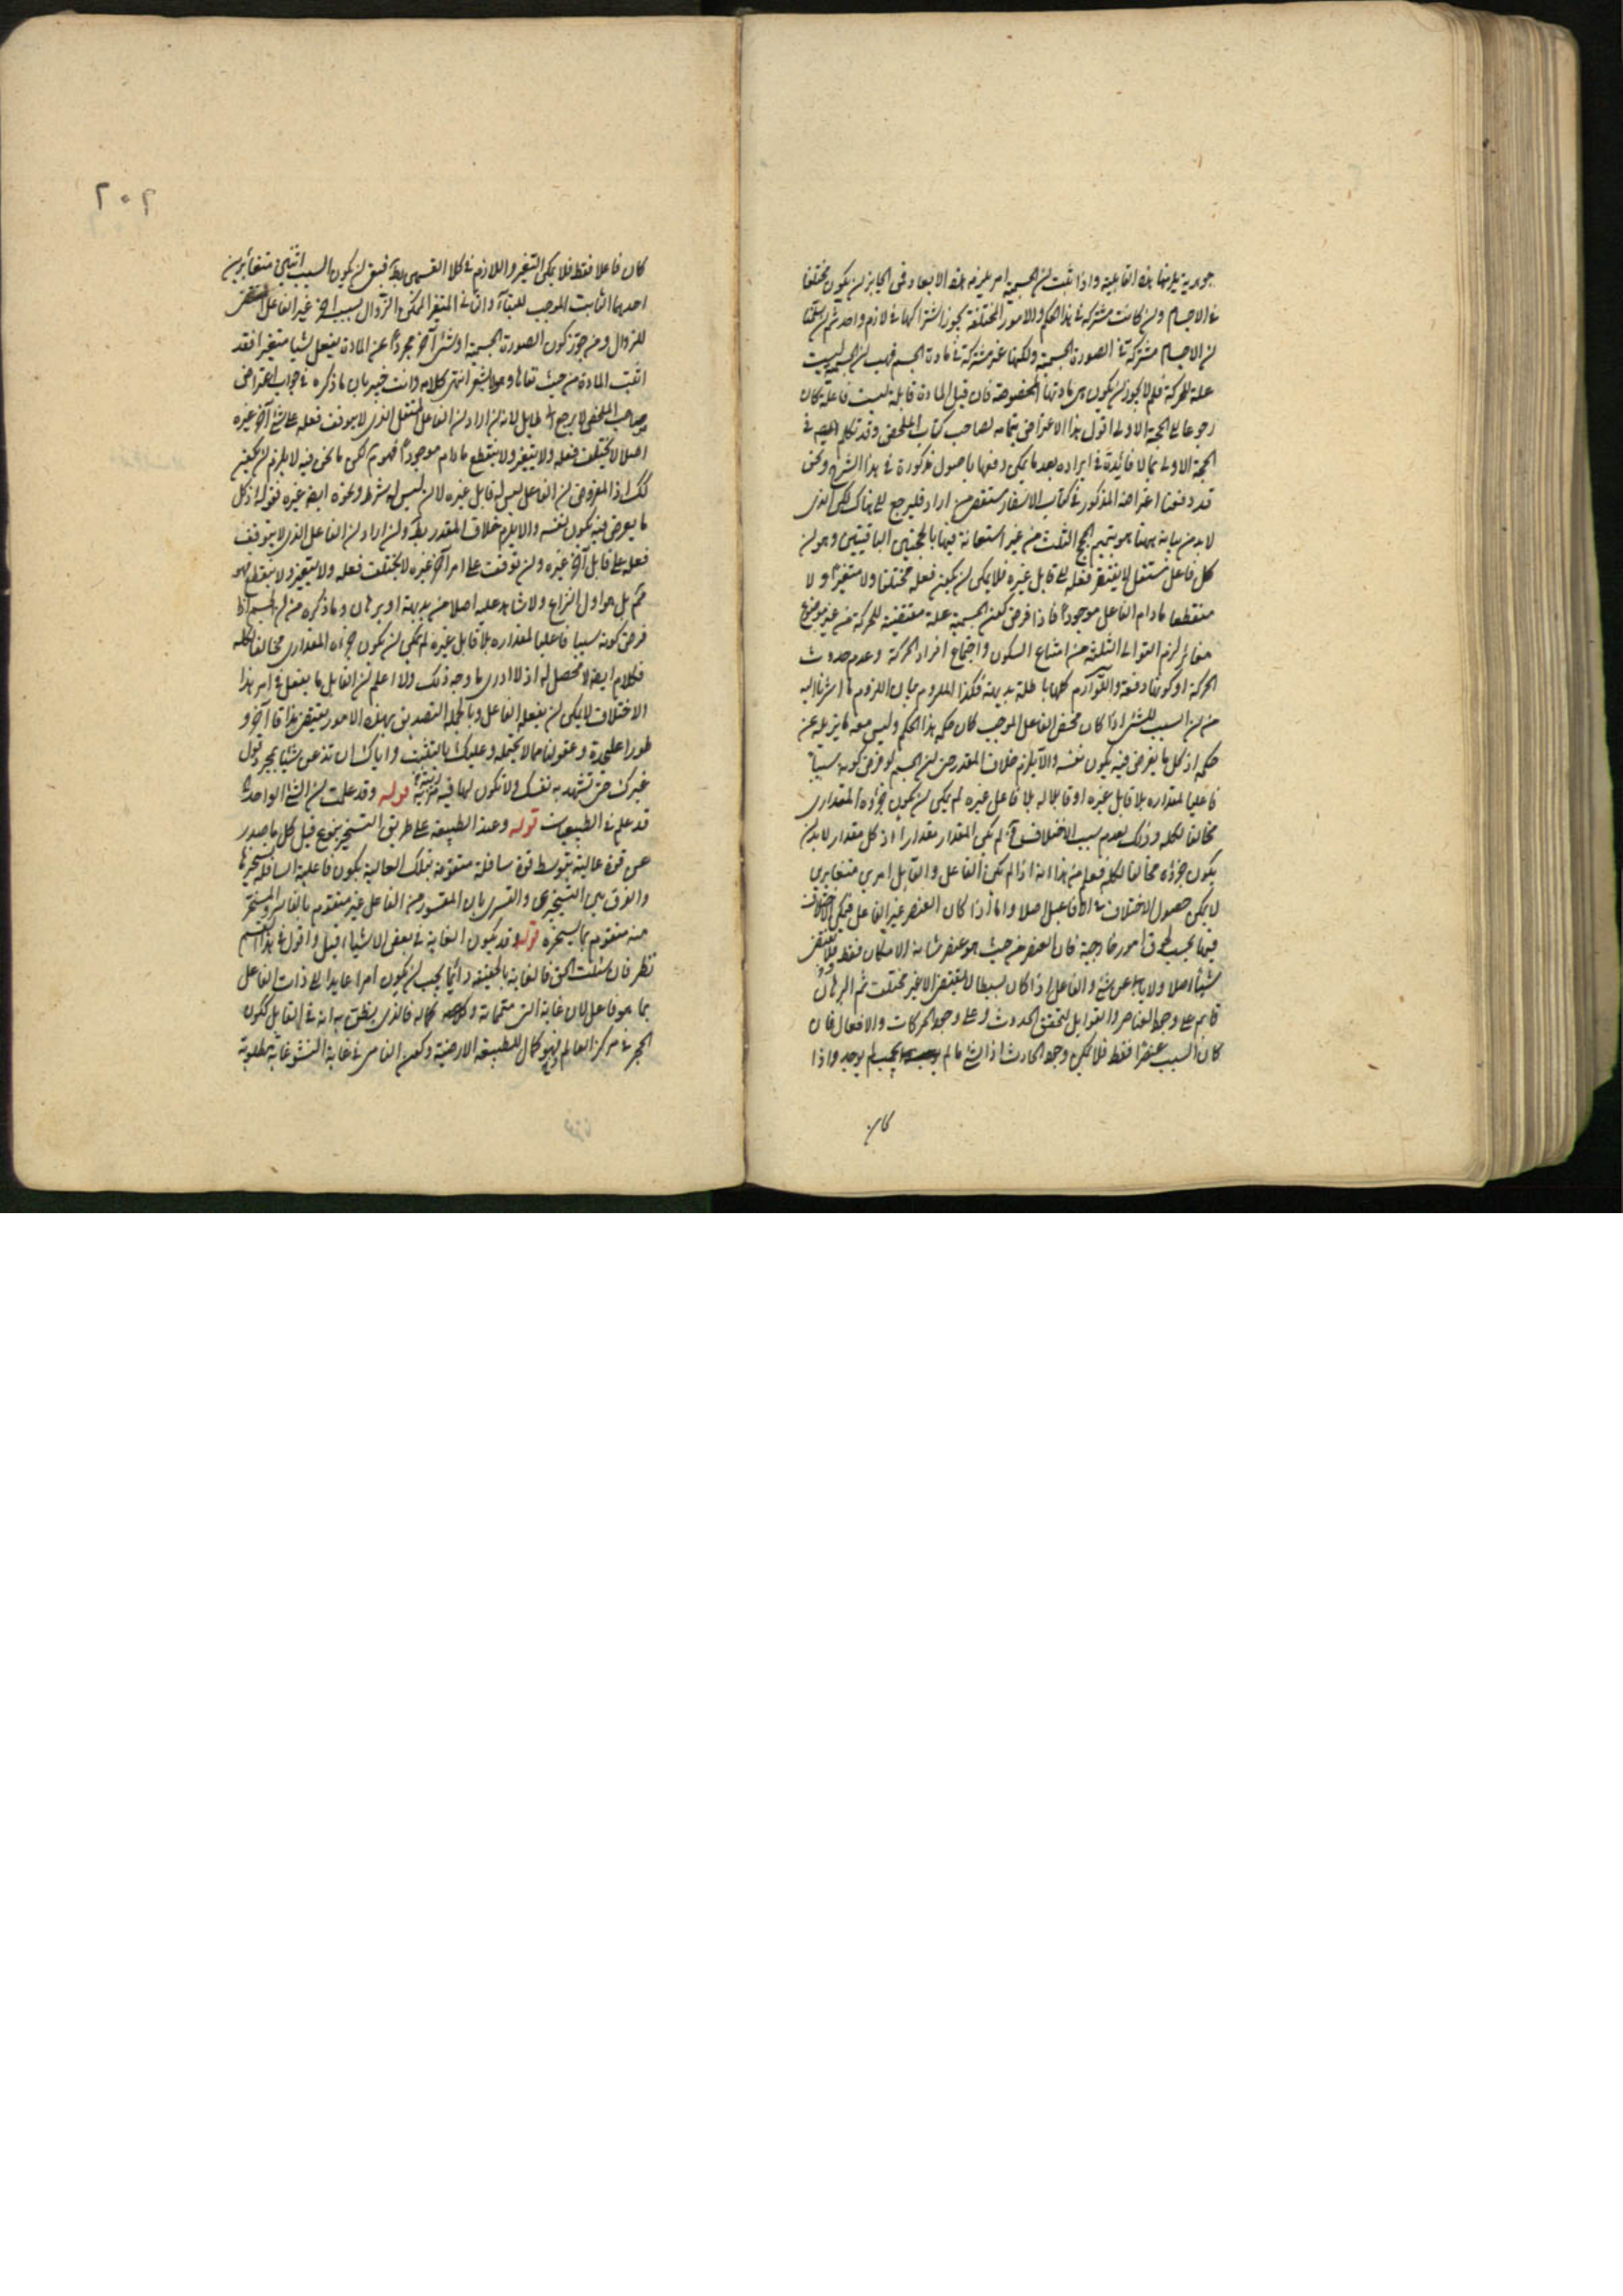 جوهرية يلزمها هذه القابلية واذا ثبت ان الجسمية امر يلزمه هذه الابعاد فمن الجايز ان يكون مختلفا
فى الاجسام وان كانت مشتركة فى هذا الحكم والامور المختلفة يجوز اشتراكها فى لازم واحد ثم ان سلمنا
ان الاجسام مشتركة فى الصورة الجسمية ولكنها غير مشتركة فى مادة الجسم فهب ان الجسمية ليست
علة للحركة فلم لا يجوز ان يكون هى مادتها المخصوصة فان قيل المادة قابلة ليست فاعلة كان
رجوعا الى الحجة الاولى اقول هذا الاعتراض بتمامه لصاحب كتاب الملخص وقد تكلم فى
الحجة الاولى بما لا فائدة فى ايراده بعد ما يمكن دفعها باصول مذكورة فى هذا الشرح ونحن
قد دفعنا اعتراضه المذكور فى كتاب الاسفار من اراد فليرجع الى هناك لكن الذى
لا بد من بيانه ههنا هو تتميم الحجج الثلث من غير استعانة فيها بالحجتين الباقيتين وهو ان
كل فاعل مستقل لا يفتقر فعله الى قابل غيره فلا يمكن ان يكون فعله مختلفا ولا متغيرا ولا
منقطعا ما دام الفاعل موجودا فاذا فرض كون الجسمية علة مقتضية للحركة من غير موضوع
مغاير لزم التوالى الثلثة من امتناع السكون واجتماع افراد الحركة وعدم حدوث
الحركة او كونها دفعة واللوازم كلها باطلة بديهة فكذا الملزوم بيان اللزوم ما اشرنا اليه
من ان السبب للشئ اذا كان محض الفاعل الموجب كان حكمه هذا الحكم وليس معه ما يزيله عن
حكمه اذ كل ما يفرض فيه يكون نفسه والا يلزم خلاف المقدر حتى ان الجسم لو فرض كونه سببا
فاعليا لمقداره بلا قابل غيره او قابلا له بلا فاعل غيره لم يمكن ان يكون جزؤه المقدارى
مخالفا لكله وذلك لعدم سبب الاختلاف لم يكن المقدار مقدارا اذ كل مقدار لا بد ان
يكون جزؤه مخالفا لكله فعلم من هذا انه اذا لم يكن الفاعل والقابل امرين متغايرين
لا يمكن حصول الاختلاف فى الافاعيل اصلا واما اذا كان العنصر غير الفاعل فيمكن الاختلاف
فيها بحسب لحوق امور خارجية فان العنصر من حيث هو عنصر شانه الامكان فقط فلا يقتضى
شيئا اصلا ولا يابى عن شئ والفاعل اذا كان بسيطا لا يقتضى الا غير مختلف ثم البرهان
قايم على وجود العناصر والقوابل لتحقق الحدوث وعلى وجود الحركات والافعال فان
كان السبب عنصرا فقط فلا يمكن وجود الحادث اذ الشئ ما لم يجب لم يوجد واذا
كان
٢٠٢
كان فاعلا فقط فلا يمكن التغير واللازم فى كلا القسمين بط فبقى ان يكون السبب اثنين متغايرين
احدهما الثابت الموجب للبقاء والثانى المتغير الممكن الزوال بسبب اخر غير الفاعل المقتضى
للزوال ومن جوز كون الصورة الجسمية او شئ آخر مجردا عن المادة يفعل شيئا متغيرا فقد
اثبت المادة من حيث نفاها وهو لا يشعر انتهى كلامه وانت خبير بان ما ذكره فى جواب اعتراض
صاحب الملخص لا يرجع الى طايل لانه ان اراد ان الفاعل المستقل الذى لا يتوقف فعله على شئ آخر غيره
اصلا لا يختلف فعله ولا يتغير ولا ينقطع ما دام موجودا فهو لكن ما نحن فيه لا يلزم ان يكون
كك اذ المفروض ان الفاعل ليس له قابل غيره لا ان ليس له شرط ونحوه ايضا غيره فقوله اذ كل
ما يفرض فيه يكون نفسه والا يلزم خلاف المقدر بط وان اراد ان الفاعل الذى لا يتوقف
فعله على قابل آخر غيره وان توقف على امر آخر غيره لا يختلف فعله ولا يتغير ولا ينقطع فهو
مم بل هو اول النزاع ولا شاهد عليه اصلا من بديهة او برهان وما ذكره من ان الجسم اذا
فرض كونه سببا فاعليا لمقداره بلا قابل غيره لم يمكن ان يكون جزؤه المقدارى مخالفا لكله
فكلام ايضا لا محصل له اذ لا ادرى ما وجه ذلك ولا اعلم ان القابل ما يفعل فى امر هذا
الاختلاف لا يمكن ان يفعله الفاعل وبالجملة التصديق بهذه الامور يقتضى مذاقا آخر و
طورا عليحدة وعقولنا مما لا يحتمله وعليك بالتثبت واياك ان تذعن شيئا بمجرد قول
غيرك حتى تشهد به نفسك ولا تكون لها فيه مرية قوله وقد علمت ان الشئ الواحد
قد علم فى الطبيعيات قوله وعند الطبيعة على طريق التسخير بنوع قيل كل ما صدر
عن قوة عالية بتوسط قوة سافلة متقومة بتلك العالية يكون فاعلية السافلة بتسخيرها
والفرق بين التسخيرى والقسرى بان المقسور من الفاعل غير متقوم بالقاسر والمسخر
منه متقوم بما يسخره قوله وقد يكون الغاية فى بعض الاشياء قيل واقول فى هذا القسم
نظر فان سئلت الحق فالغاية بالحقيقة دائما يجب ان يكون امرا عايدا الى ذات الفاعل
بما هو فاعل لان غاية الشئ متممة وكماله فالذى يظن به انه فى القابل ككون
الحجر فى مركز العالم فهو كمال للطبيعة الارضية وكون الناس فى غاية النشو غاية مطلوبة